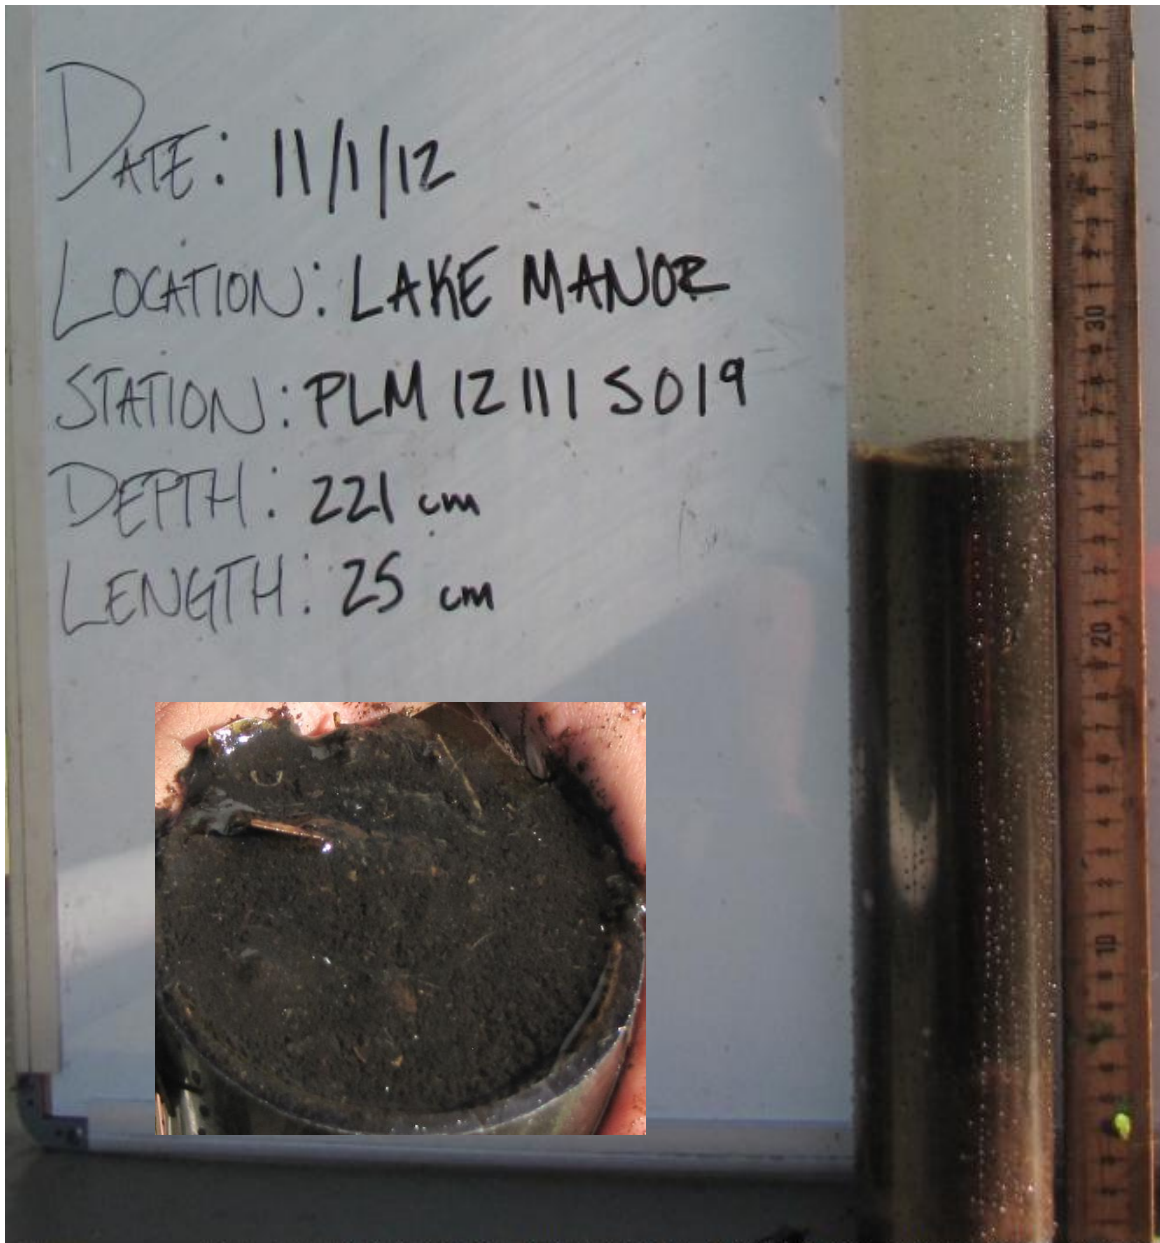 DATE: 11/1/12
LOCATION: LAKE MANOR
STATION: PLM 12 11 1 5019
DEPTH: 221 cm
LENGTH: 25 cm
30
20
10